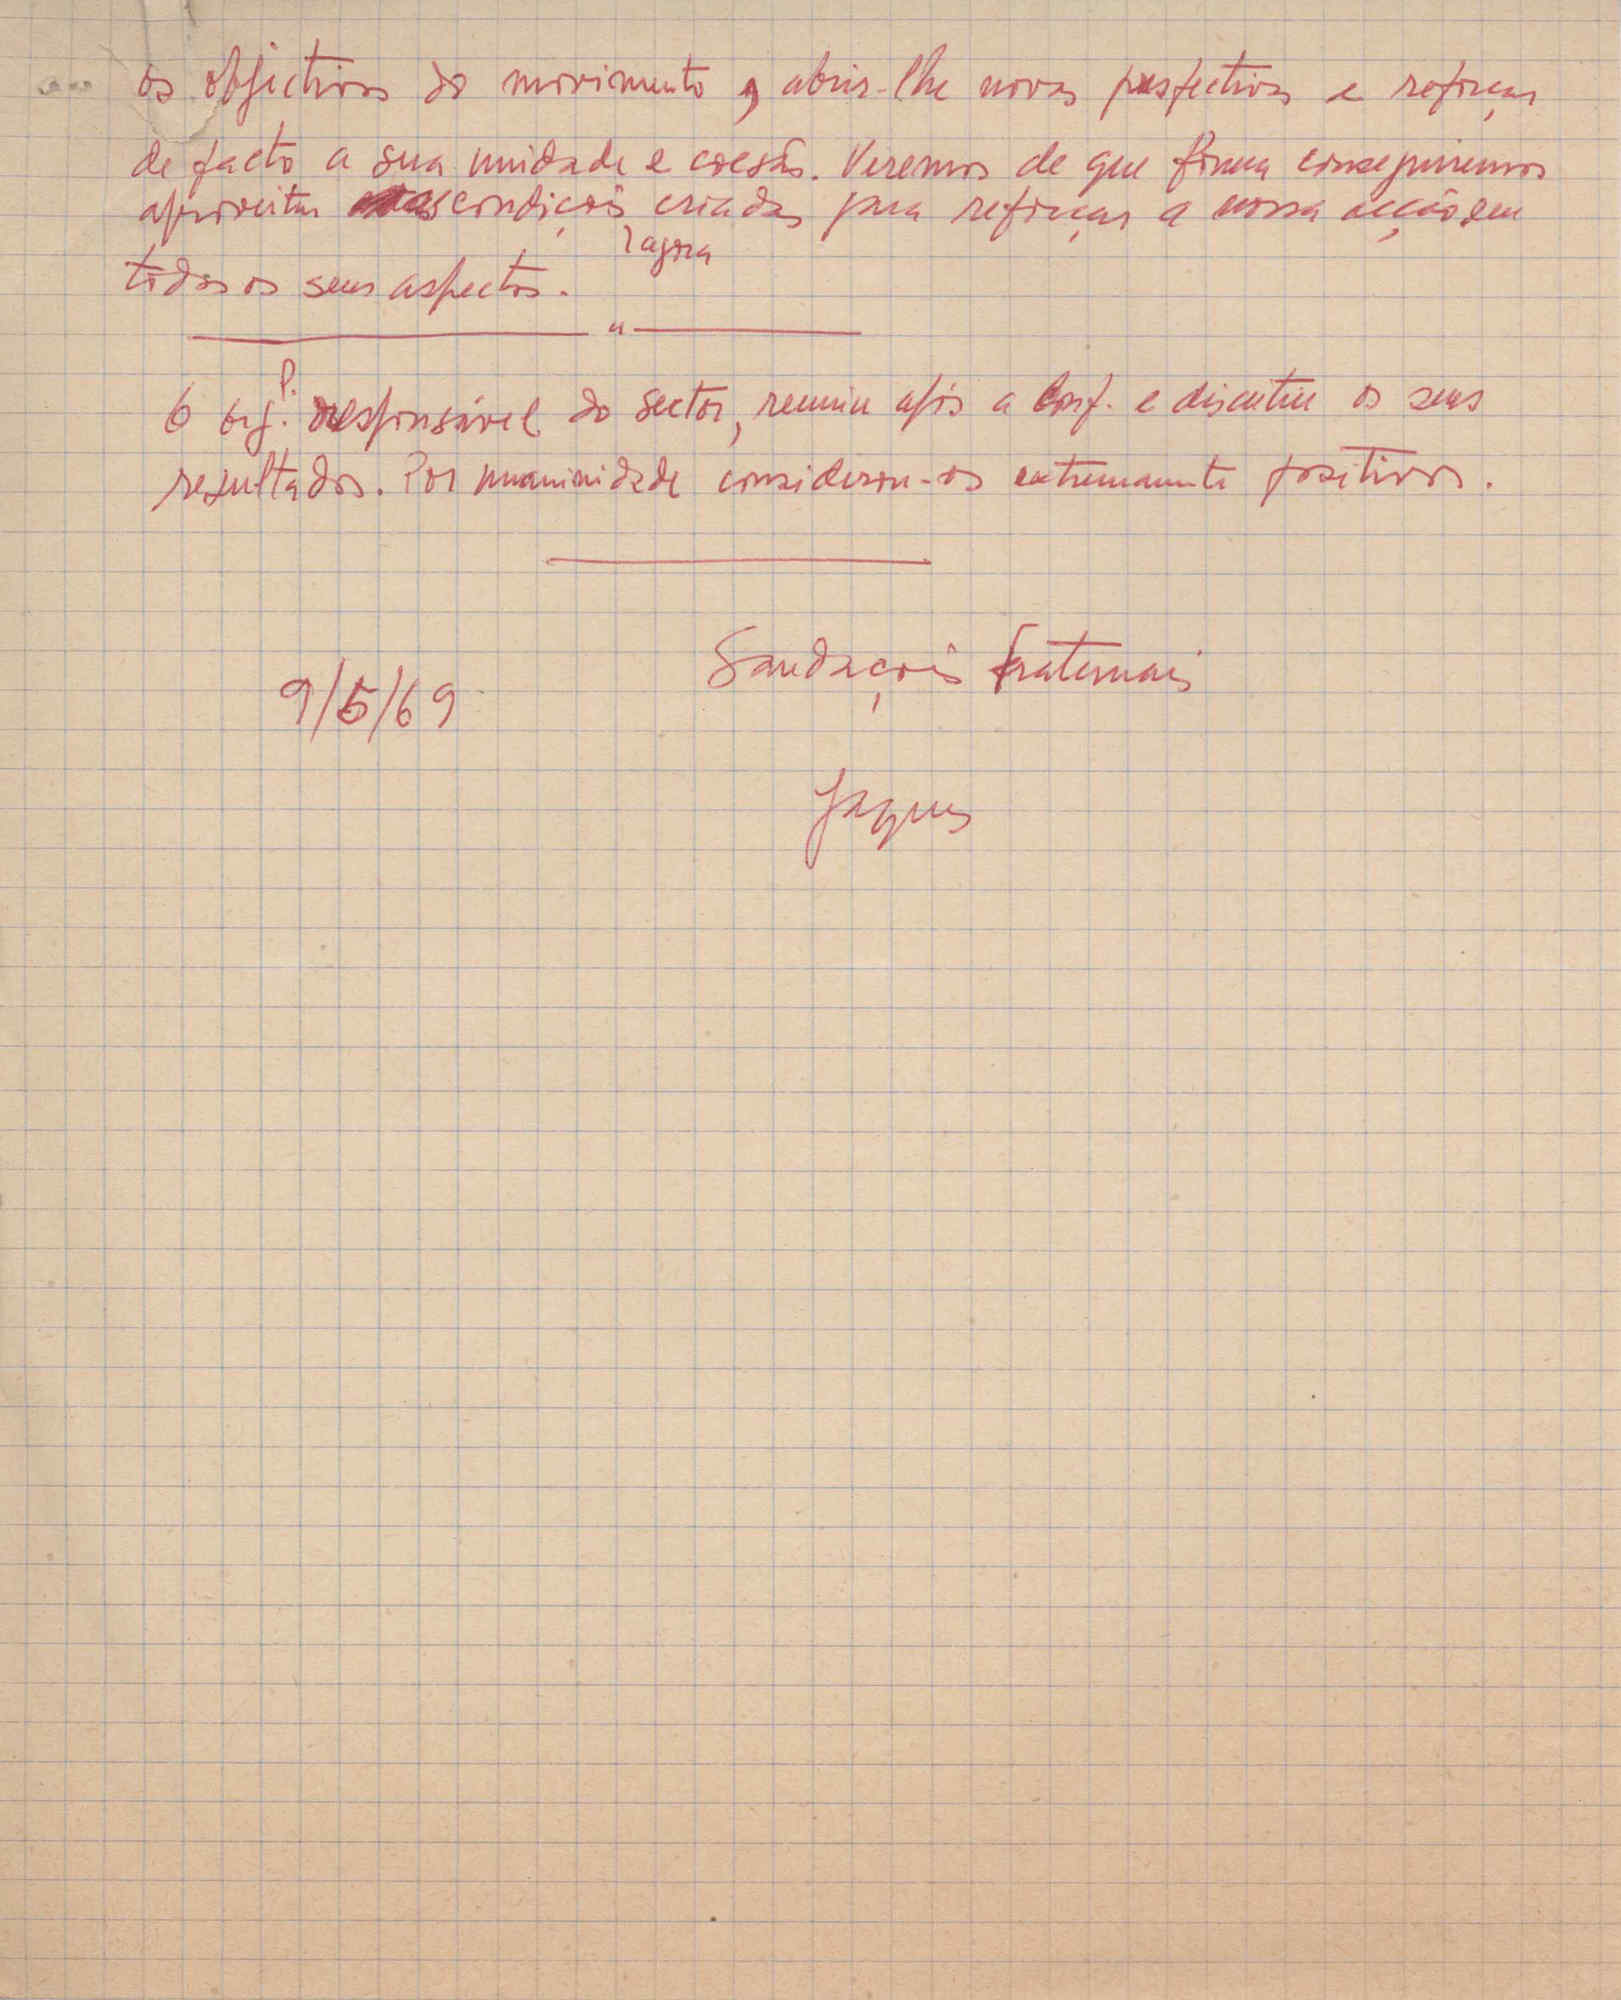 os objectivos do movimento, abrir-lhe novas perspectivas e reforçar
de facto a sua unidade e coesão. Veremos de que forma conseguiremos
aproveitar as condições criadas para reforçar a nossa acção em
agora
todos os seus aspectos.
"
O org. responsável do sector, reuniu após a Conf. e discutiu os seus
resultados. Por unanimidade considerou-os extremamente positivos.
Saudações fraternais
9/5/69
Jaques